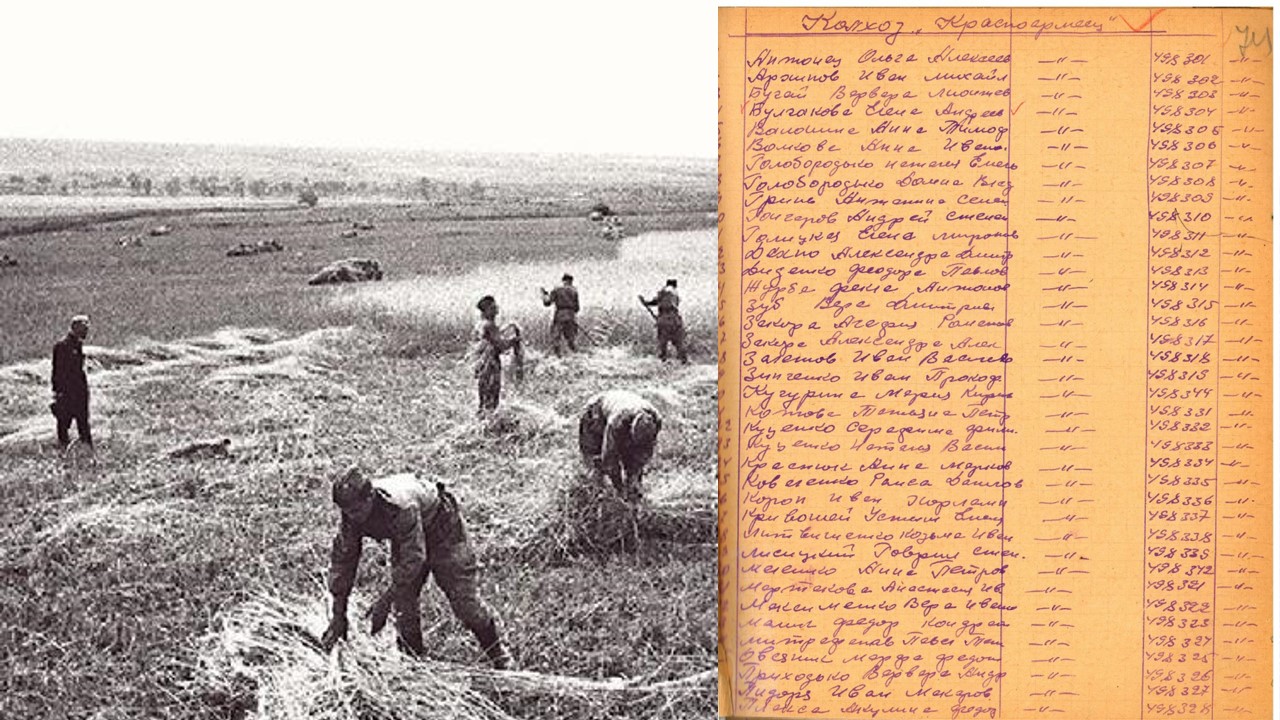 Колхоз „Красноармеец"
74
Антонец Ольга Алексеев -"- 498301 -"-
Архипов Иван Михайл -"- 498302 -"-
Бугай Варвара -"- 498303 -"-
Булгакова Елена Андреев -"- 498304 -"-
Ванюшина Анна Тимоф -"- 498305 -"-
Волкова Анна Иван. -"- 498306 -"-
Голобородько Наталия Емель -"- 498307 -"-
Голобородько Домна -"- 498308 -"-
Гринь Семен -"- 498309 -"-
Гончаров Андрей Степан -"- 498310 -"-
Галицкая Елена Миронов -"- 498311 -"-
Дахно Александра Дмитр -"- 498312 -"-
Диденко Феодора Павлов -"- 498313 -"-
Журба Фекла Антонов -"- 498314 -"-
Зуб Вера Дмитриев -"- 498315 -"-
Закора Агафия Романов -"- 498316 -"-
Закора Александра Алек -"- 498317 -"-
Залетов Иван Васильев -"- 498318 -"-
Зинченко Иван Прокоф -"- 498319 -"-
Кучурина Мария -"- 498344 -"-
Котова Татьяна Петр -"- 498331 -"-
Куценко Серафима -"- 498332 -"-
Куценко Наталия Васил -"- 498333 -"-
Краснюк Анна Марков -"- 498334 -"-
Коваленко Раиса Данилов -"- 498335 -"-
Короп Иван -"- 498336 -"-
Кривошей Устин -"- 498337 -"-
Литвишенко Козьма Иван -"- 498338 -"-
Лисицкий Гаврил Степ. -"- 498339 -"-
Маленко Анна Петров -"- 498342 -"-
Мартакова Анастасия Ив -"- 498321 -"-
Максименко Вера Ивано -"- 498322 -"-
Малиш Федор Кондрат -"- 498323 -"-
Митрофанов Павел -"- 498324 -"-
Овсяник Марфа Федот -"- 498325 -"-
Приходько Варвара Андр -"- 498326 -"-
Пидора Иван Макаров -"- 498327 -"-
Плакса Акулина Федор -"- 498328 -"-